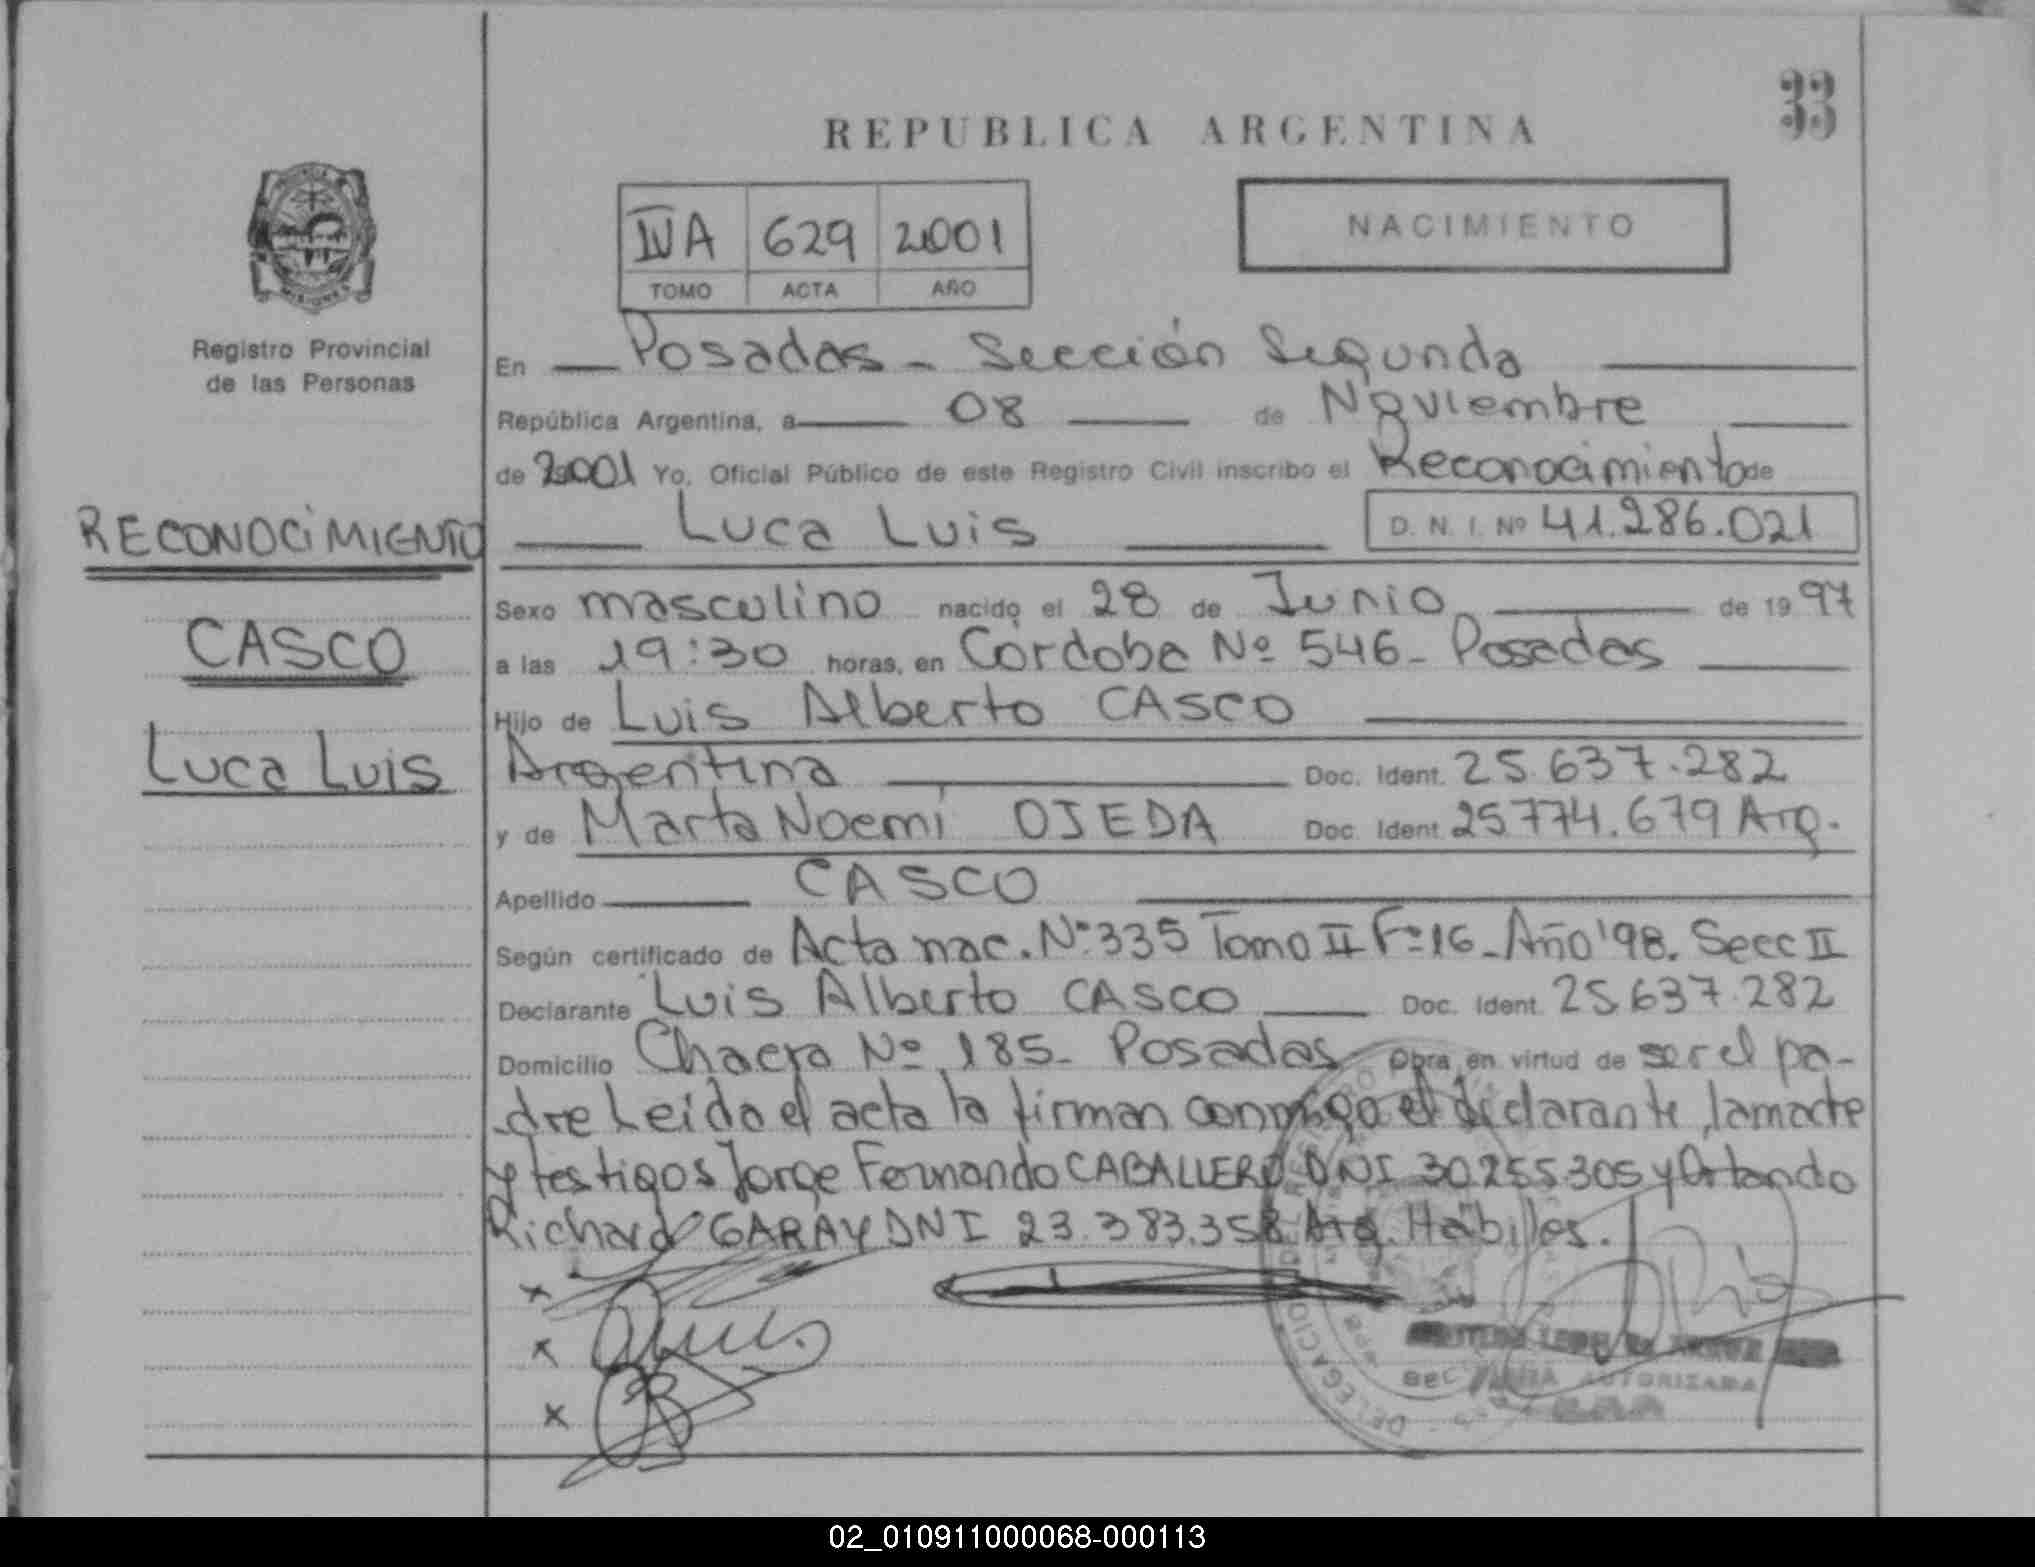 33
REPUBLICA ARGENTINA
IVA 629 2001
TOMO ACTA AÑO
NACIMIENTO
Registro Provincial
de las Personas
En Posadas - Sección Segunda
República Argentina, a 08 de Noviembre
de 2001 Yo, Oficial Público de este Registro Civil inscribo el Reconocimiento de
RECONOCIMIENTO
Luca Luis D. N. I. Nº 41.286.021
Sexo masculino nacido el 28 de Junio de 1997
CASCO
a las 19:30 horas, en Córdoba Nº 546 - Posadas
Hijo de Luis Alberto CASCO
Luca Luis
Argentina Doc. Ident. 25.637.282
y de Marta Noemí OJEDA Doc. Ident. 25774.679 Arg.
Apellido CASCO
Según certificado de Acta nac. Nº 335 Tomo II Fº 16 - Año '98. Secc II
Declarante Luis Alberto CASCO Doc. Ident. 25.637.282
Domicilio Chacra Nº 185 - Posadas Obra en virtud de ser el pa-
dre Leída el acta la firman conmigo el declarante, la madre
y testigos Jorge Fernando CABALLERO DNI 30.255.305 y Orlando
Richard GARAY DNI 23.383.358 Arg. Hábiles.
x
x
x
AUTORIZADA
DELEGACION
02_010911000068-000113